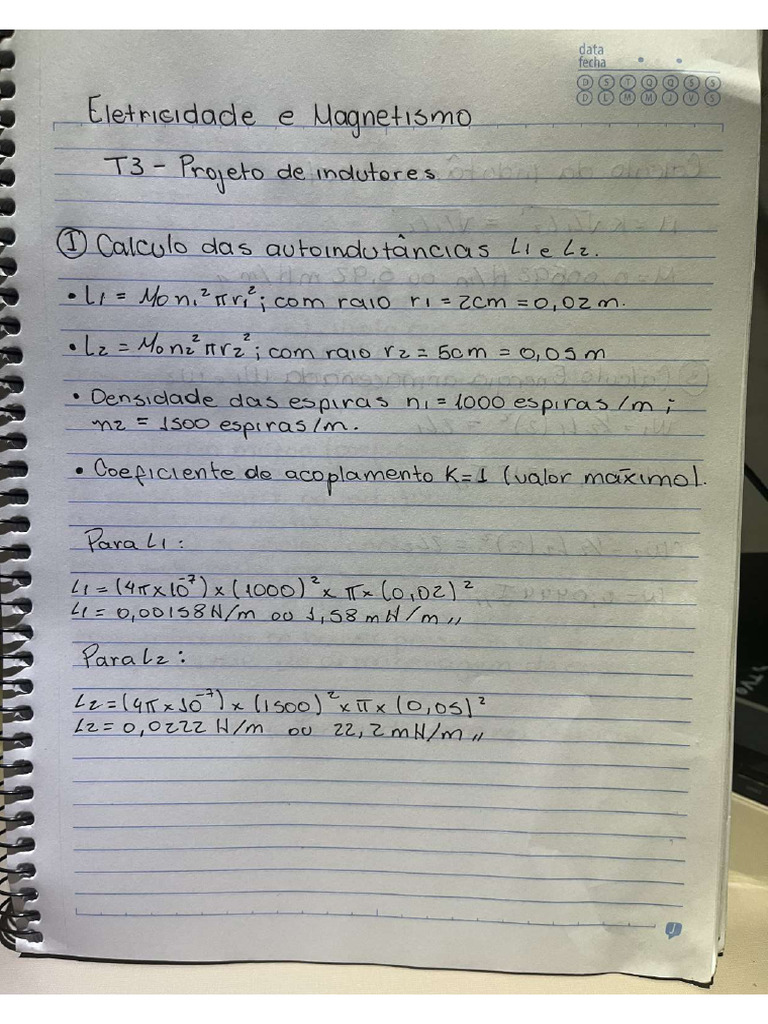 data
fecha
D S T Q Q S S
D L M M J V S
Eletricidade e Magnetismo
T3 - Projeto de indutores
① Calculo das autoindutâncias L1 e L2.
• L1 = Mo n1² πr1²; com raio r1 = 2cm = 0,02 m.
• L2 = Mo n2² πr2²; com raio r2 = 5cm = 0,05 m
• Densidade das espiras n1 = 1000 espiras/m;
n2 = 1500 espiras/m.
• Coeficiente de acoplamento K=1 (valor maximo).
Para L1:
L1 = (4π x 10⁻⁷) x (1000)² x π x (0,02)²
L1 = 0,00158 H/m ou 1,58 mH/m,,
Para L2:
L2 = (4π x 10⁻⁷) x (1500)² x π x (0,05)²
L2 = 0,0222 H/m ou 22,2 mH/m,,